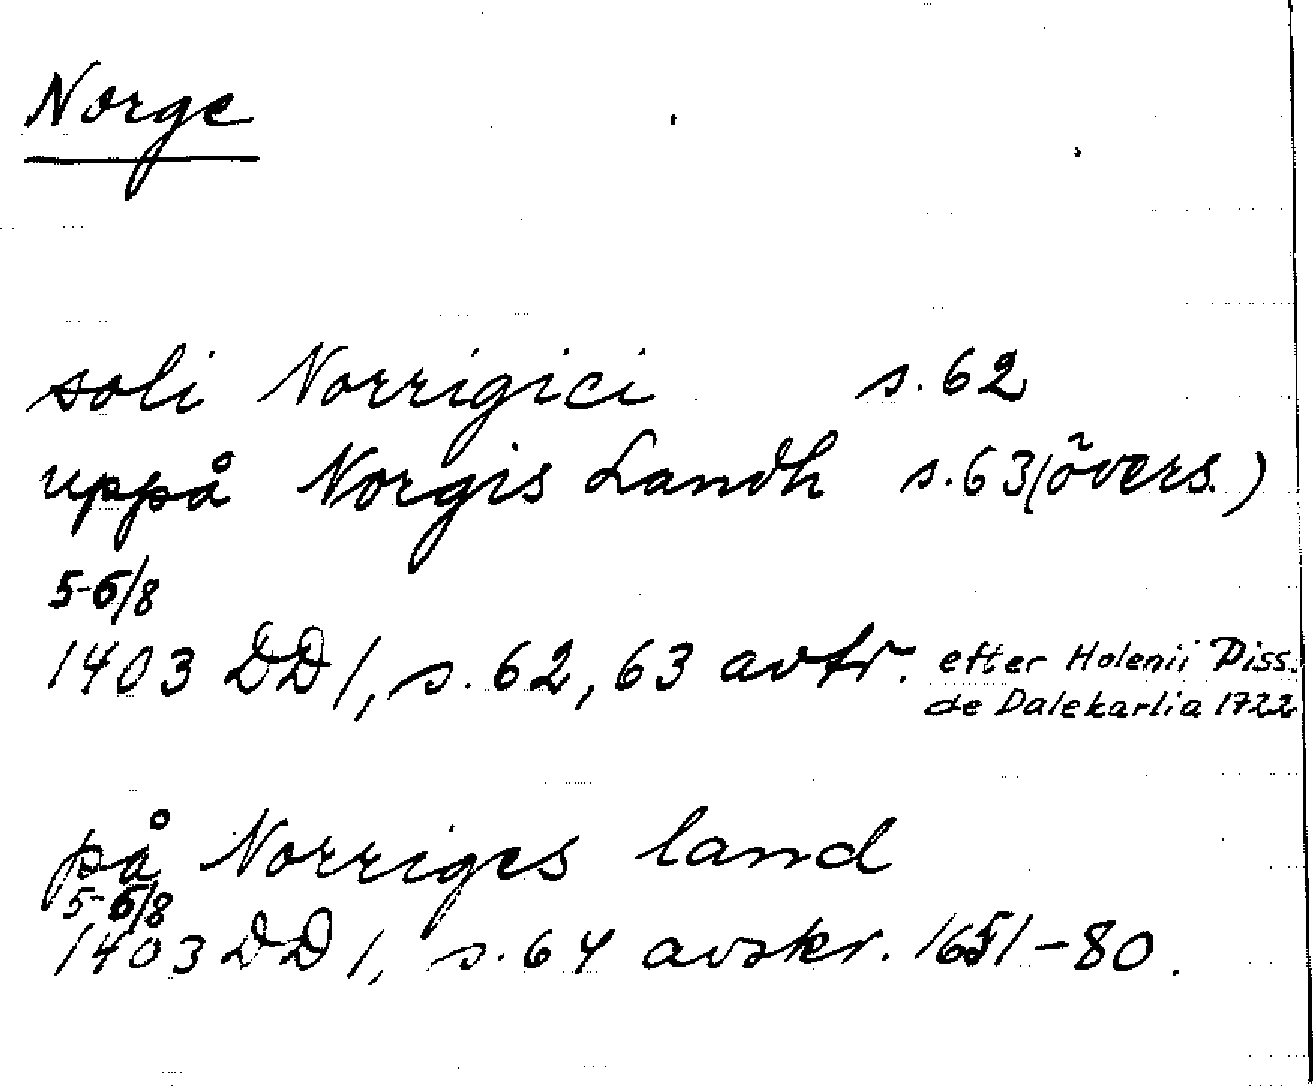 Norge
soli Norrigici s.62
uppå Norgis Landh s.63 (övers.)
5-6/8
1403 DD 1, s.62, 63 avtr. efter Holenii Diss.
de Dalekarlia 1722
på Norriges land
5-6/8
1403 DD 1, s.64 avskr. 1651-80.